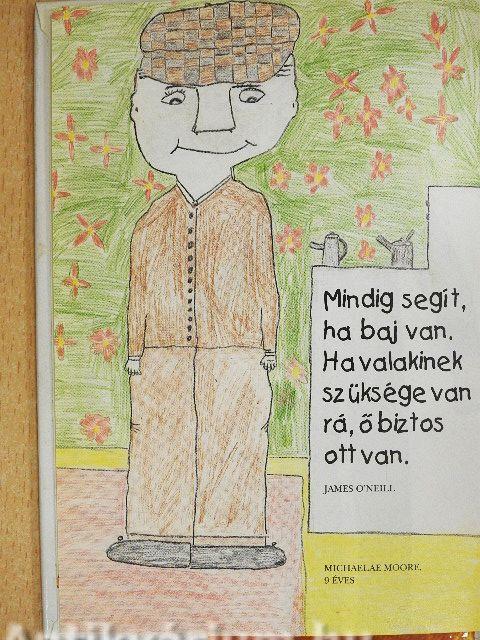 Mindig segít,
ha baj van.
Ha valakinek
szüksége van
rá, ő biztos
ott van.
JAMES O'NEILL
MICHAELAE MOORE,
9 ÉVES